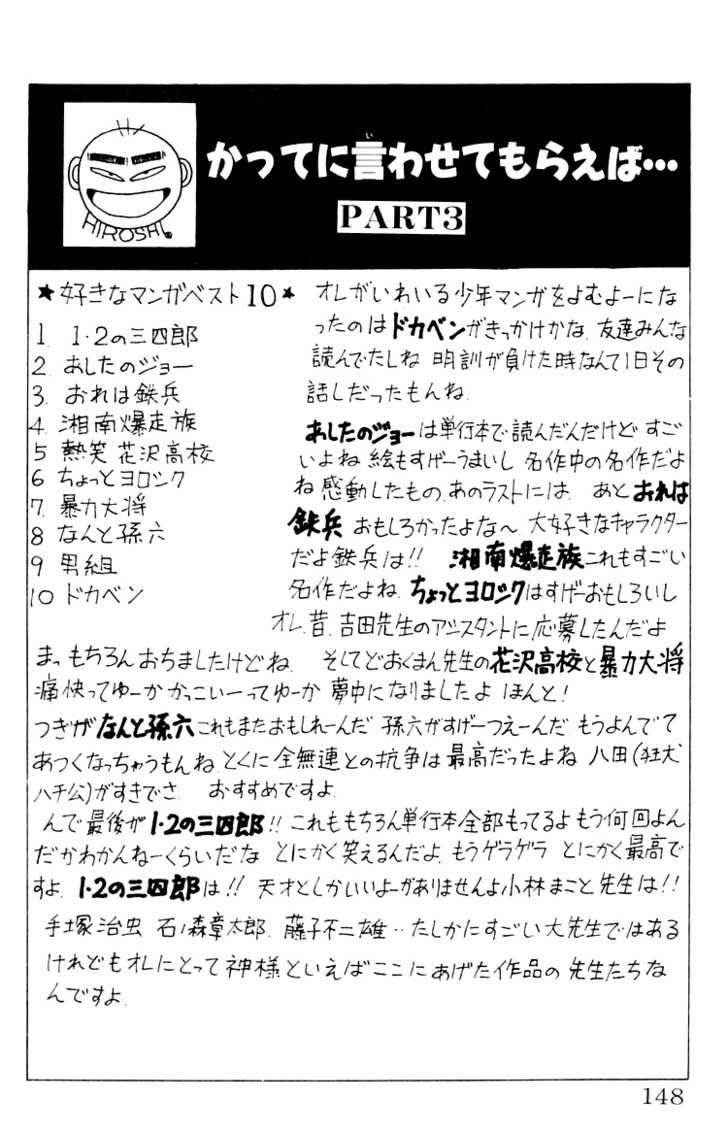 かってに言わせてもらえば…
PART3
HIROSHI
★好きなマンガベスト10★
1 1・2の三四郎
2 あしたのジョー
3 おれは鉄兵
4 湘南爆走族
5 熱笑 花沢高校
6 ちょっとヨロシク
7 暴力大将
8 なんと孫六
9 男組
10 ドカベン
オレがいわいる少年マンガをよむよーにな
ったのはドカベンがきっかけかな。友達みんな
読んでたしね 明訓が負けた時なんて1日その
話しだったもんね。
あしたのジョーは単行本で読んだんだけど すご
いよね 絵もすげーうまいし 名作中の名作だよ
ね 感動したもの、あのラストには。 あと おれは
鉄兵 おもしろかったよな〜 大好きなキャラクター
だよ鉄兵は!! 湘南爆走族これもすごい
名作だよね。ちょっとヨロシクはすげーおもしろいし
オレ、昔、吉田先生のアシスタントに応募したんだよ
まっもちろんおちましたけどね。 そしてどおくまん先生の花沢高校と暴力大将
痛快ってゆーか かっこいーってゆーか 夢中になりましたよ ほんと!
つぎがなんと孫六これもまたおもしれーんだ 孫六がすげーつえーんだ もうよんでて
あつくなっちゃうもんね。とくに全無連との抗争は最高だったよね 八田(狂犬
ハチ公)がすきでさ おすすめですよ。
んで最後が1・2の三四郎!! これももちろん単行本全部もってるよもう何回よん
だかわかんねーくらいだな とにかく笑えるんだよ。もうゲラゲラ とにかく最高で
すよ。1・2の三四郎は!! 天才としかいいよーがありませんよ小林まこと先生は!!
手塚治虫 石ノ森章太郎、藤子不二雄‥たしかにすごい大先生ではある
けれどもオレにとって神様といえばここにあげた作品の先生たちな
んですよ。
148